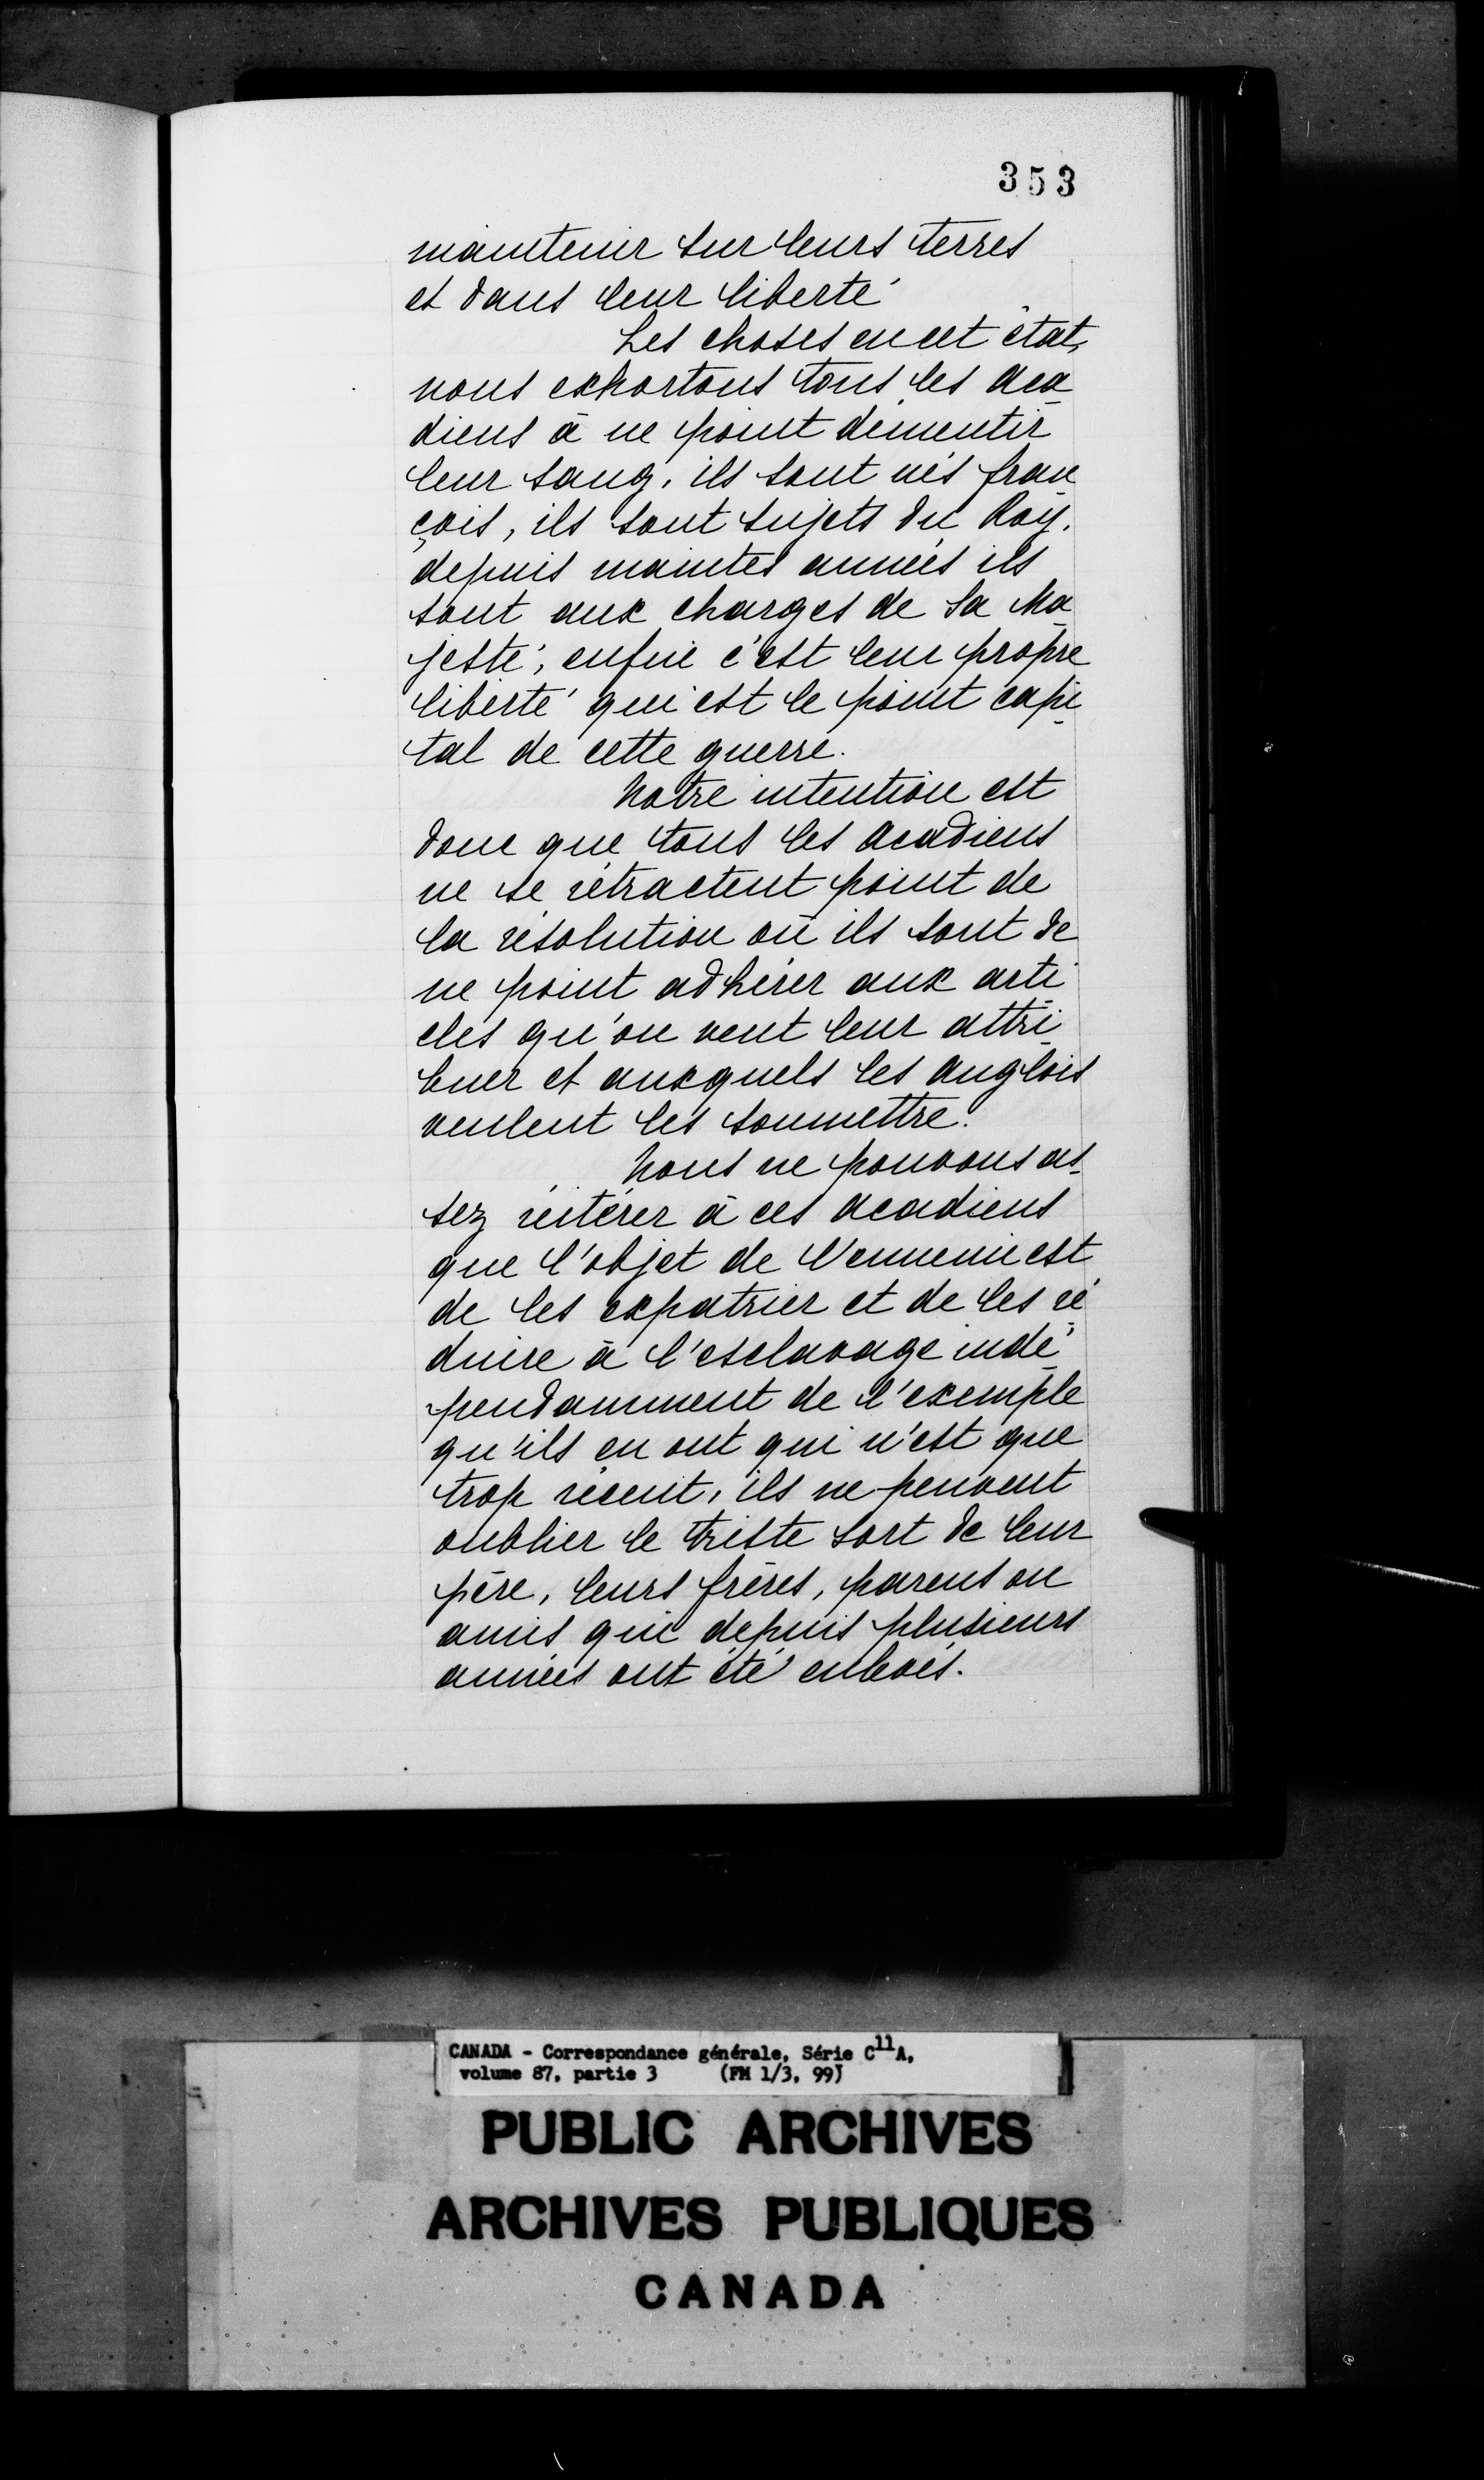 353
maintenir sur leurs terres
et dans leur liberté
Les choses en cet état,
nous exhortons tous les aca
diens à ne point démentir
leur sang, ils sont nés fran
çois, ils sont sujets du Roy.
depuis maintes années ils
sont aux charges de Sa Ma
jesté; enfin c'est leur propre
liberté qui est le point capi
tal de cette guerre.
Notre intention est
donc que tous les acadiens
ne se rétractent point de
la résolution où ils sont de
ne point adhérer aux arti
cles qu'on veut leur attri
buer et auxquels les anglois
veulent les soumettre.
Nous ne pouvons as-
sez réitérer à ces acadiens
que l'objet de l'ennemi est
de les expatrier et de les ré
duire à l'esclavage indé
pendamment de l'exemple
qu'ils en ont qui n'est que
trop récent, ils ne peuvent
oublier le triste sort de leur
père, leurs frères, parens ou
amis qui depuis plusieurs
années ont été enlevés.
CANADA - Correspondance générale, Série C11A,
volume 87, partie 3 (FM 1/3, 99)
PUBLIC ARCHIVES
ARCHIVES PUBLIQUES
CANADA